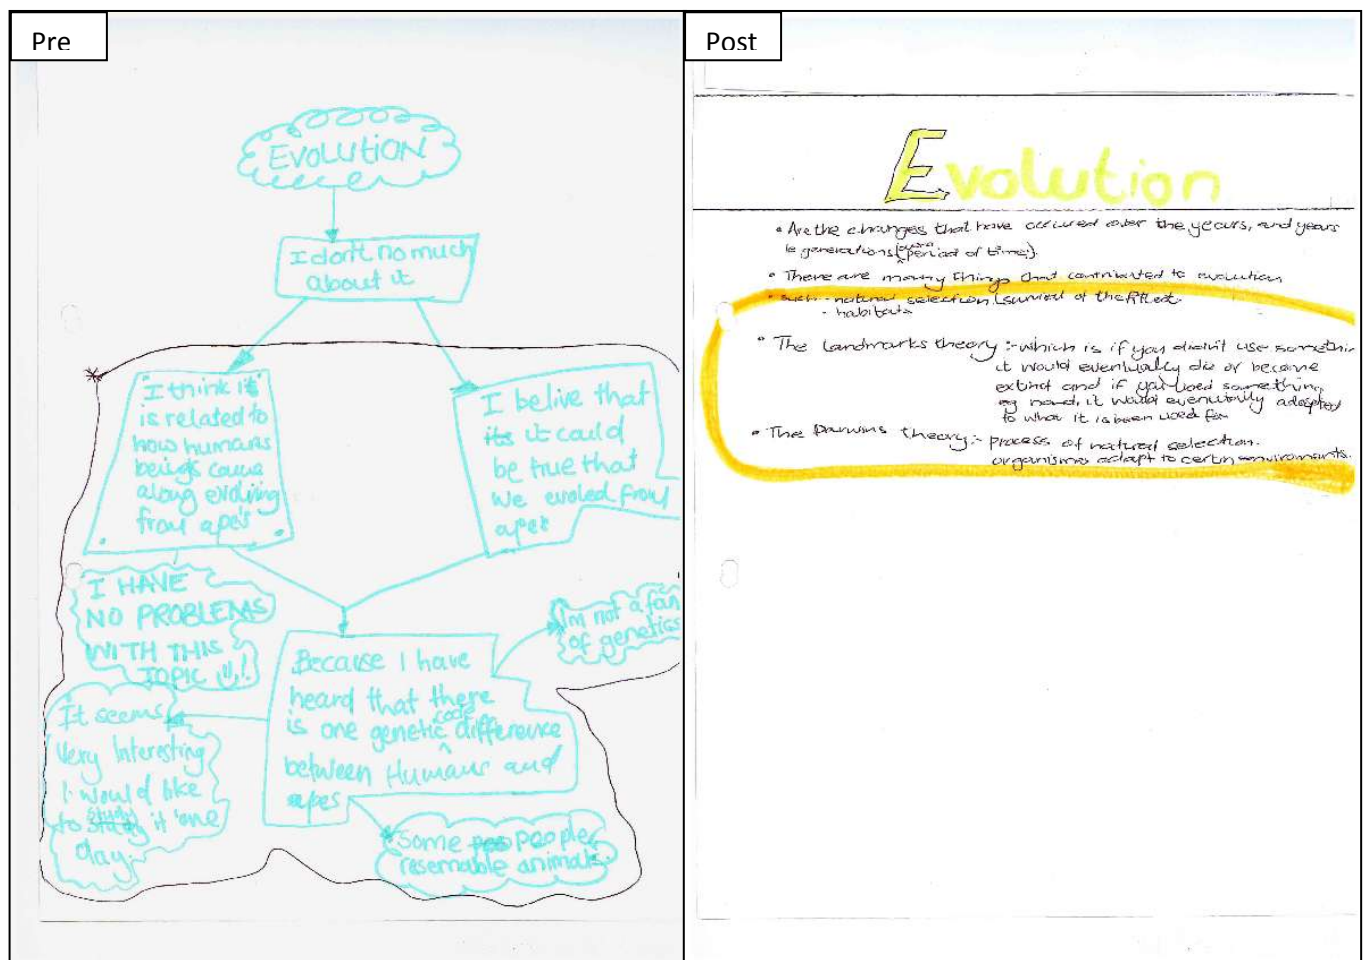 Pre
EVOLUTION
I don't no much
about it
"I think it"
is related to
how humans
beings came
along evolving
from apes
I belive that
its it could
be true that
we evoled from
apes
I HAVE
NO PROBLEMS
WITH THIS
TOPIC !
I'm not a fan
of genetics
Because I have
heard that there
is one genetic code difference
between Humans and
apes
It seems
Very Interesting
I would like
to study study it one
day.
Some peo people
resemable animals.
Post
Evolution
• Are the changes that have occured over the years, and years
ie generations (over a period of time).
• There are many things that contributed to evolution
• such - natural selection (survival of the fittest
- habitats
• The Landmarks theory :- which is if you didn't use somethin
it would eventually die or became
extinct and if you used something
eg hand, it would eventually adapted
to what it is been used for
• The Darwins theory :- process of natural selection.
organisms adapt to certin enviroments.